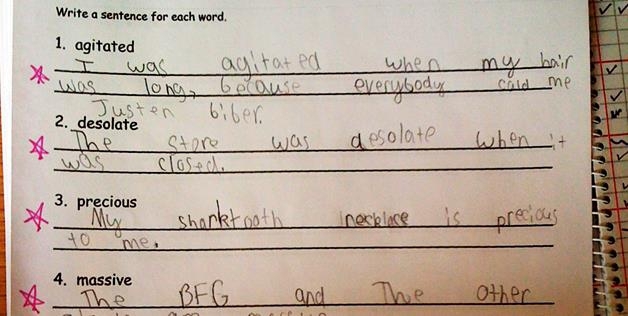 Write a sentence for each word.
1. agitated
I was agitated when my hair
was long, because everybody cald me
Justen biber.
2. desolate
The store was desolate when it
was closed.
3. precious
My sharktooth necklace is precious
to me.
4. massive
The BFG and The other